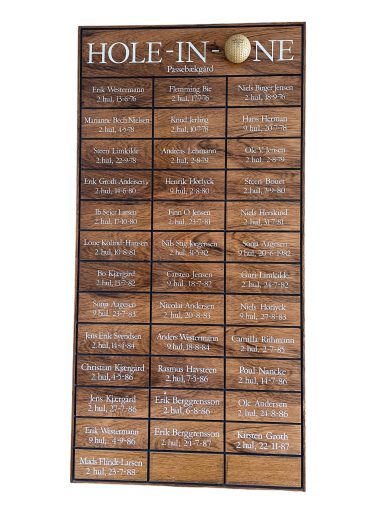 HOLE-IN-ONE
Passebækgård
Erik Westermann
2. hul, 13-6-76
Flemming Bie
2. hul, 17-7-76
Niels Birger Jensen
2. hul, 18-9-76
Marianne Bech Nielsen
2. hul, 4-6-78
Knud Jerling
2. hul, 10-7-78
Hans Herman
9. hul, 20-7-78
Steen Limkilde
2. hul, 22-9-78
Andreas Lehmann
2. hul, 2-8-79
Ole V. Jensen
2. hul, 2-8-79
Erik Groth-Andersen
2. hul, 14-6-80
Henrik Hørlyck
9. hul, 2-8-80
Steen Bonet
2. hul, 7-9-80
Ib Seier Larsen
2. hul, 17-10-80
Finn O. Jensen
2. hul, 23-7-81
Niels Herskind
2. hul, 31-7-81
Lone Kolind-Hansen
2. hul, 10-8-81
Nils Stig Jørgensen
2. hul, 31-5-82
Sonja Aagesen
9. hul, 20-6-1982
Bo Kjærgård
2. hul, 13-7-82
Carsten Jensen
9. hul, 18-7-82
Guri Limkilde
2. hul, 24-7-82
Sonja Aagesen
9. hul, 23-7-83
Nicolai Andersen
2. hul, 20-8-83
Niels Hørlyck
9. hul, 27-8-83
Jens Erik Svendsen
2. hul, 14-4-84
Anders Westermann
9. hul, 18-8-84
Camilla Rühmann
2. hul, 2-7-85
Christian Kjærgård
2. hul, 4-5-86
Rasmus Havsteen
2. hul, 7-5-86
Poul Nancke
2. hul, 14-7-86
Jens Kjærgård
2. hul, 27-7-86
Erik Berggrensson
2. hul, 6-8-86
Ole Andersen
2. hul, 24-8-86
Erik Westermann
9. hul, 4-9-86
Erik Berggrensson
2. hul, 24-7-87
Kirsten Groth
2. hul, 22-11-87
Mads Flindt-Larsen
2. hul, 23-7-88